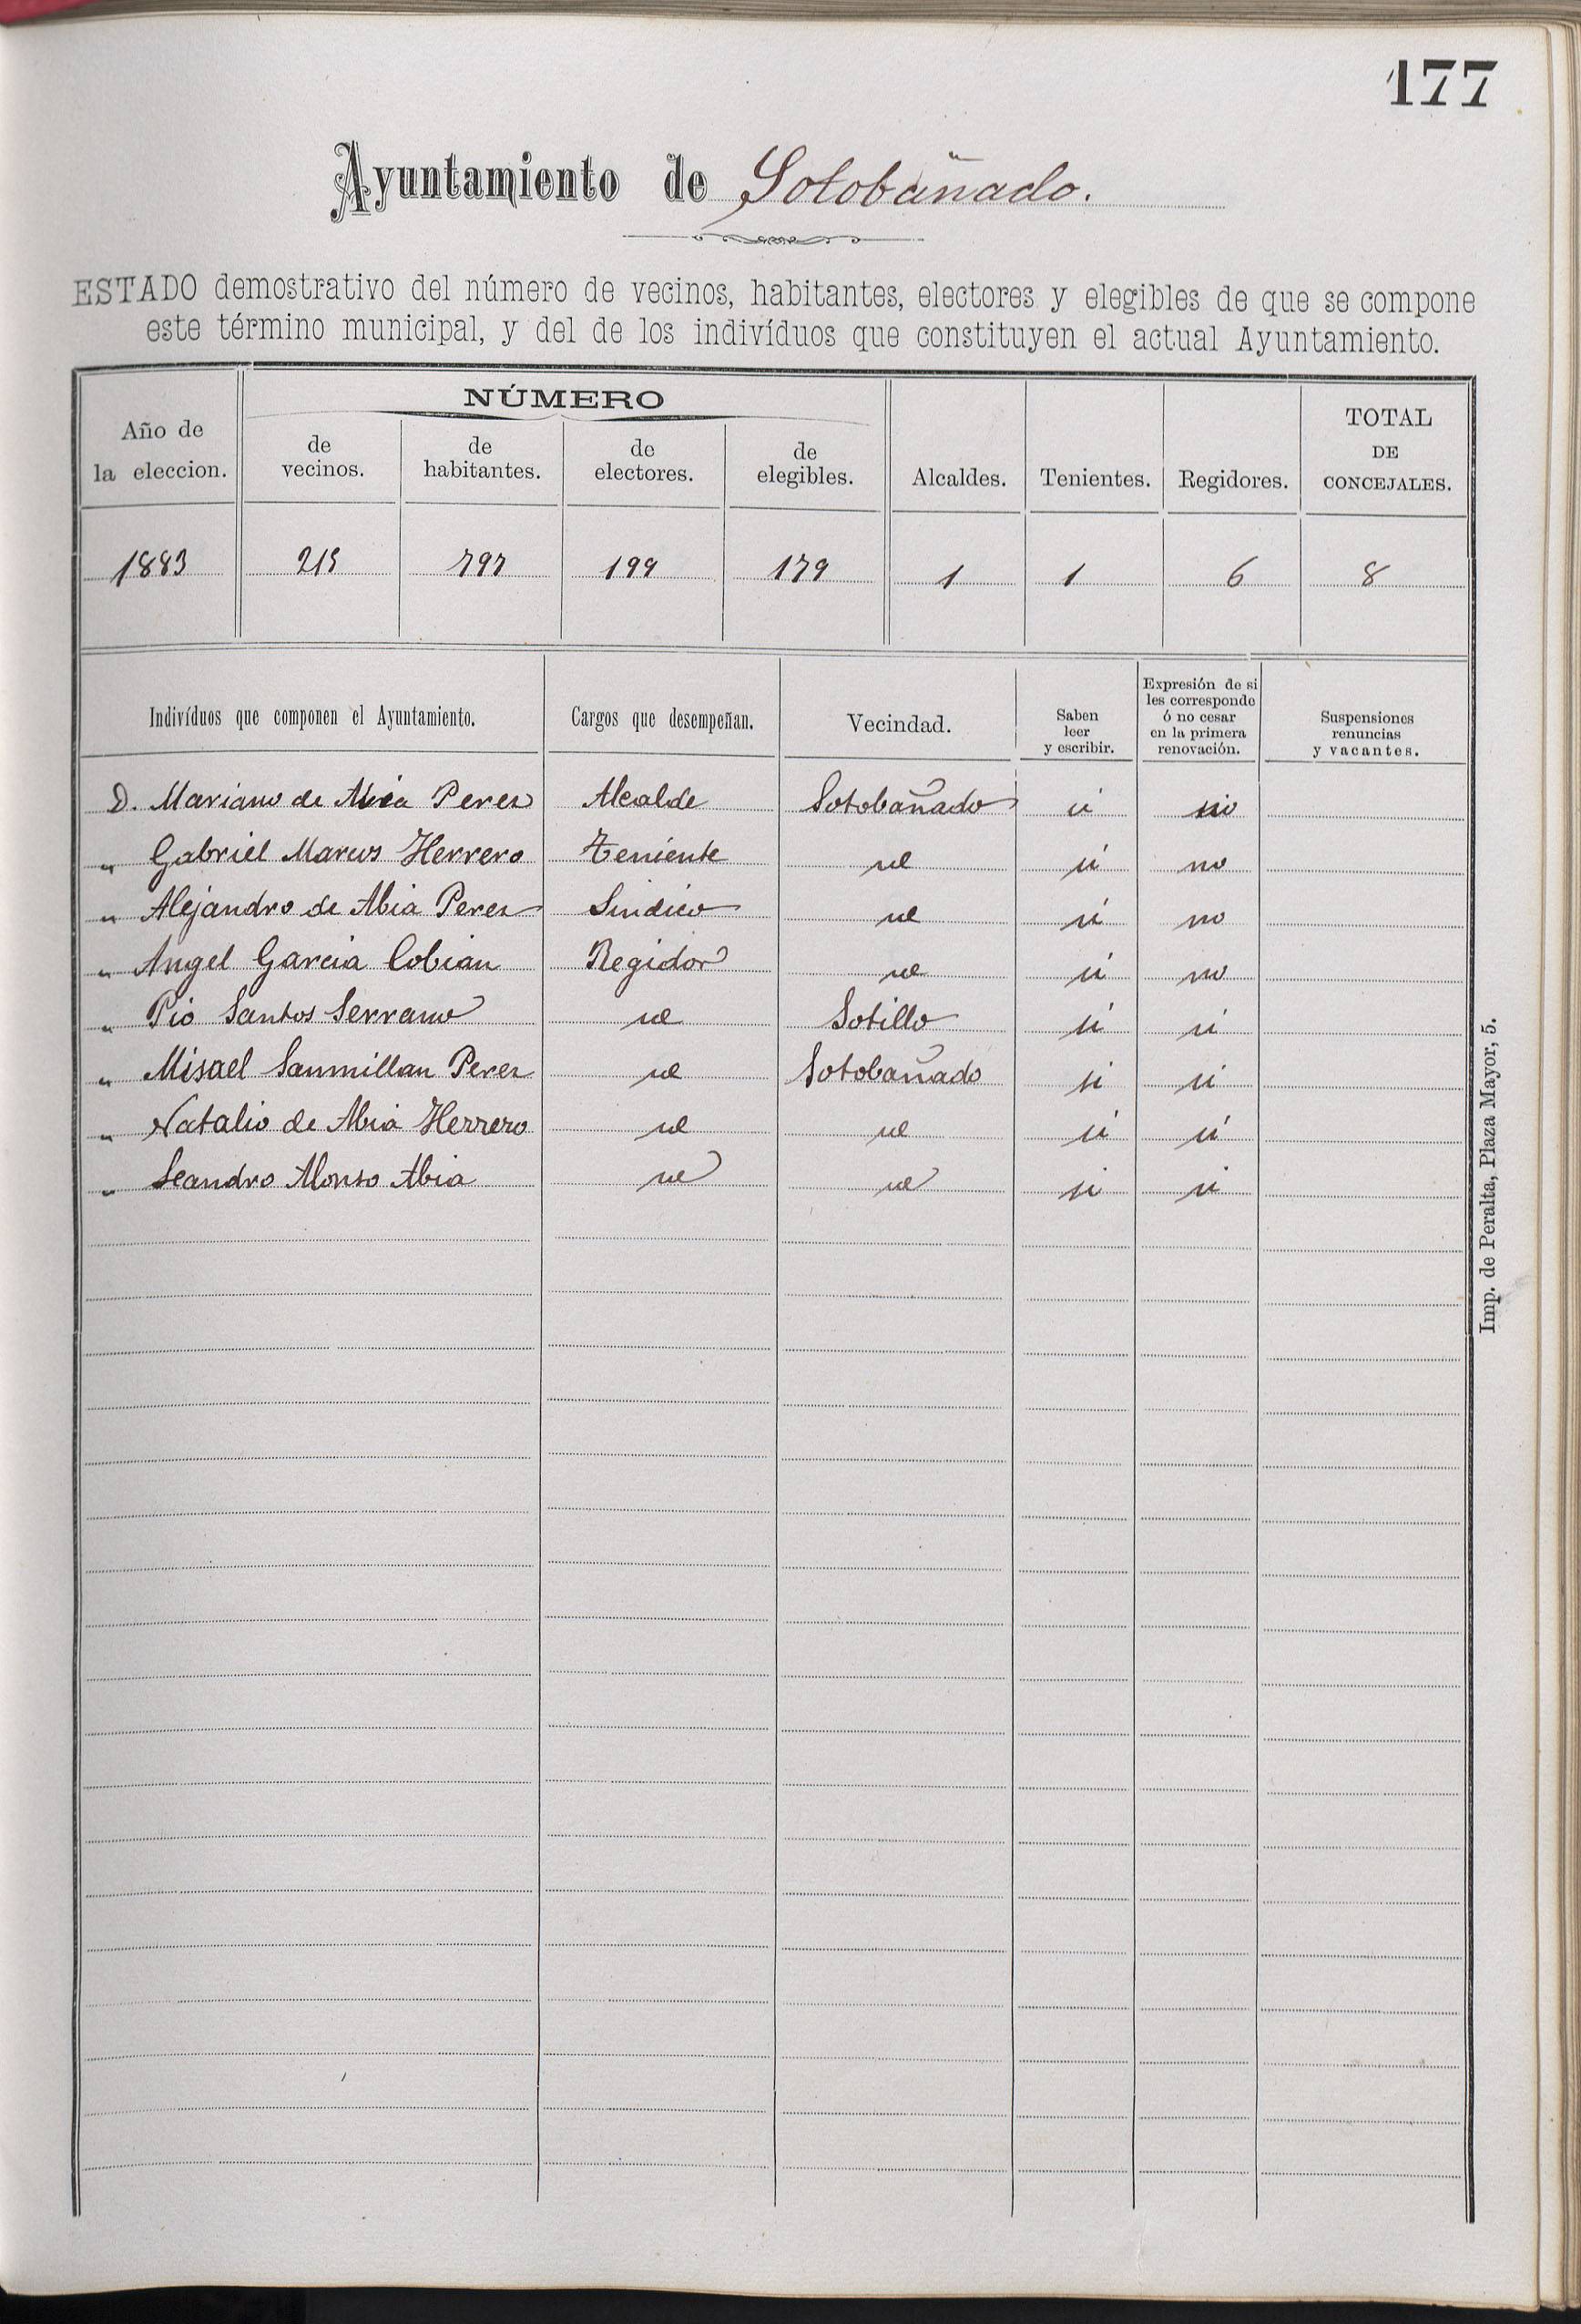 177
Ayuntamiento de Sotobañado.
ESTADO demostrativo del número de vecinos, habitantes, electores y elegibles de que se compone
este término municipal, y del de los indivíduos que constituyen el actual Ayuntamiento.
Año de la eleccion. NÚMERO de vecinos. de habitantes. de electores. de elegibles. Alcaldes. Tenientes. Regidores. TOTAL DE CONCEJALES.
1883 215 797 199 179 1 1 6 8
Indivíduos que componen el Ayuntamiento. Cargos que desempeñan. Vecindad. Saben leer y escribir. Expresión de si les corresponde ó no cesar en la primera renovación. Suspensiones renuncias y vacantes.
D. Mariano de Abia Perez Alcalde Sotobañado si no
" Gabriel Marcos Herrero Teniente id si no
" Alejandro de Abia Perez Sindico id si no
" Angel Garcia Cobian Regidor id si no
" Pio Santos Serrano id Sotillo si si
" Misael Sanmillan Perez id Sotobañado si si
" Natalio de Abia Herrero id id si si
" Leandro Alonso Abia id id si si
Imp. de Peralta, Plaza Mayor, 5.